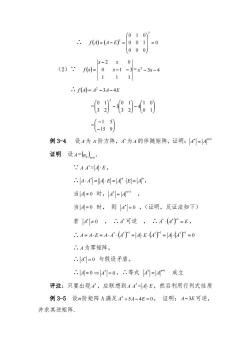 ∴ f(A)=(A-E)³= |0 1 0; 0 0 1; 0 0 0|³ =0
(2)∵ f(x)= |x-2 x 0; 0 x-1 -3; 1 1 1| =x²-3x-4
∴f(A)=A²-3A-4E
=(0 1; 3 2)²-3(0 1; 3 2)-4(1 0; 0 1)
=(-1 5; -15 9)
例 3-4 设 A 为 n 阶方阵，A*为 A 的伴随矩阵，证明：|A*|=|A|ⁿ⁻¹
证明 设A=(aᵢⱼ)ₙₓₙ,
∵A·A*=|A|·E，
∴|A·A*|=||A|·E|=|A|ⁿ·|E|=|A|ⁿ,
当|A|≠0 时，|A*|=|A|ⁿ⁻¹，
当|A|=0 时，则|A*|=0 ，(证明，反证法如下)
若|A*|≠0 ，∴A*可逆 ，∴A*·(A*)⁻¹=E，
∴A=A·E=A·A*·(A*)⁻¹=|A|·E·(A*)⁻¹=|A|·(A*)⁻¹=0
∴A为零矩阵，
∴|A*|=0 与假设矛盾，
∴|A|=0⇒|A*|=0，∴等式 |A*|=|A|ⁿ⁻¹ 成立
评注：只要出现A*，应联想到A·A*=|A|·E，然后利用行列式性质
例 3-5 设n阶矩阵A满足A²+5A-4E=0， 证明：A-3E可逆，
并求其逆矩阵.